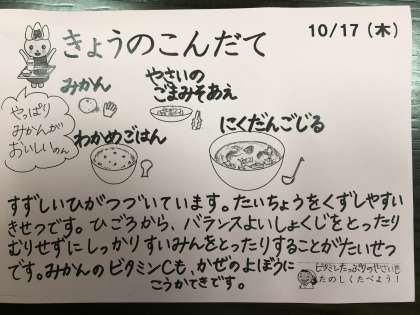 10/17(木)
きょうのこんだて
みかん
やさいの
ごまみそあえ
やっぱり
みかんが
おいしいのん
わかめごはん
にくだんごじる
すずしいひがつづいています。たいちょうをくずしやすい
きせつです。ひごろから、バランスよいしょくじをとったり
むりせずにしっかりすいみんをとったりすることがたいせつ
です。みかんのビタミンCも、かぜのよぼうに
こうかてきです。
ビタミンたっぷりのやさいも
たのしくたべよう!